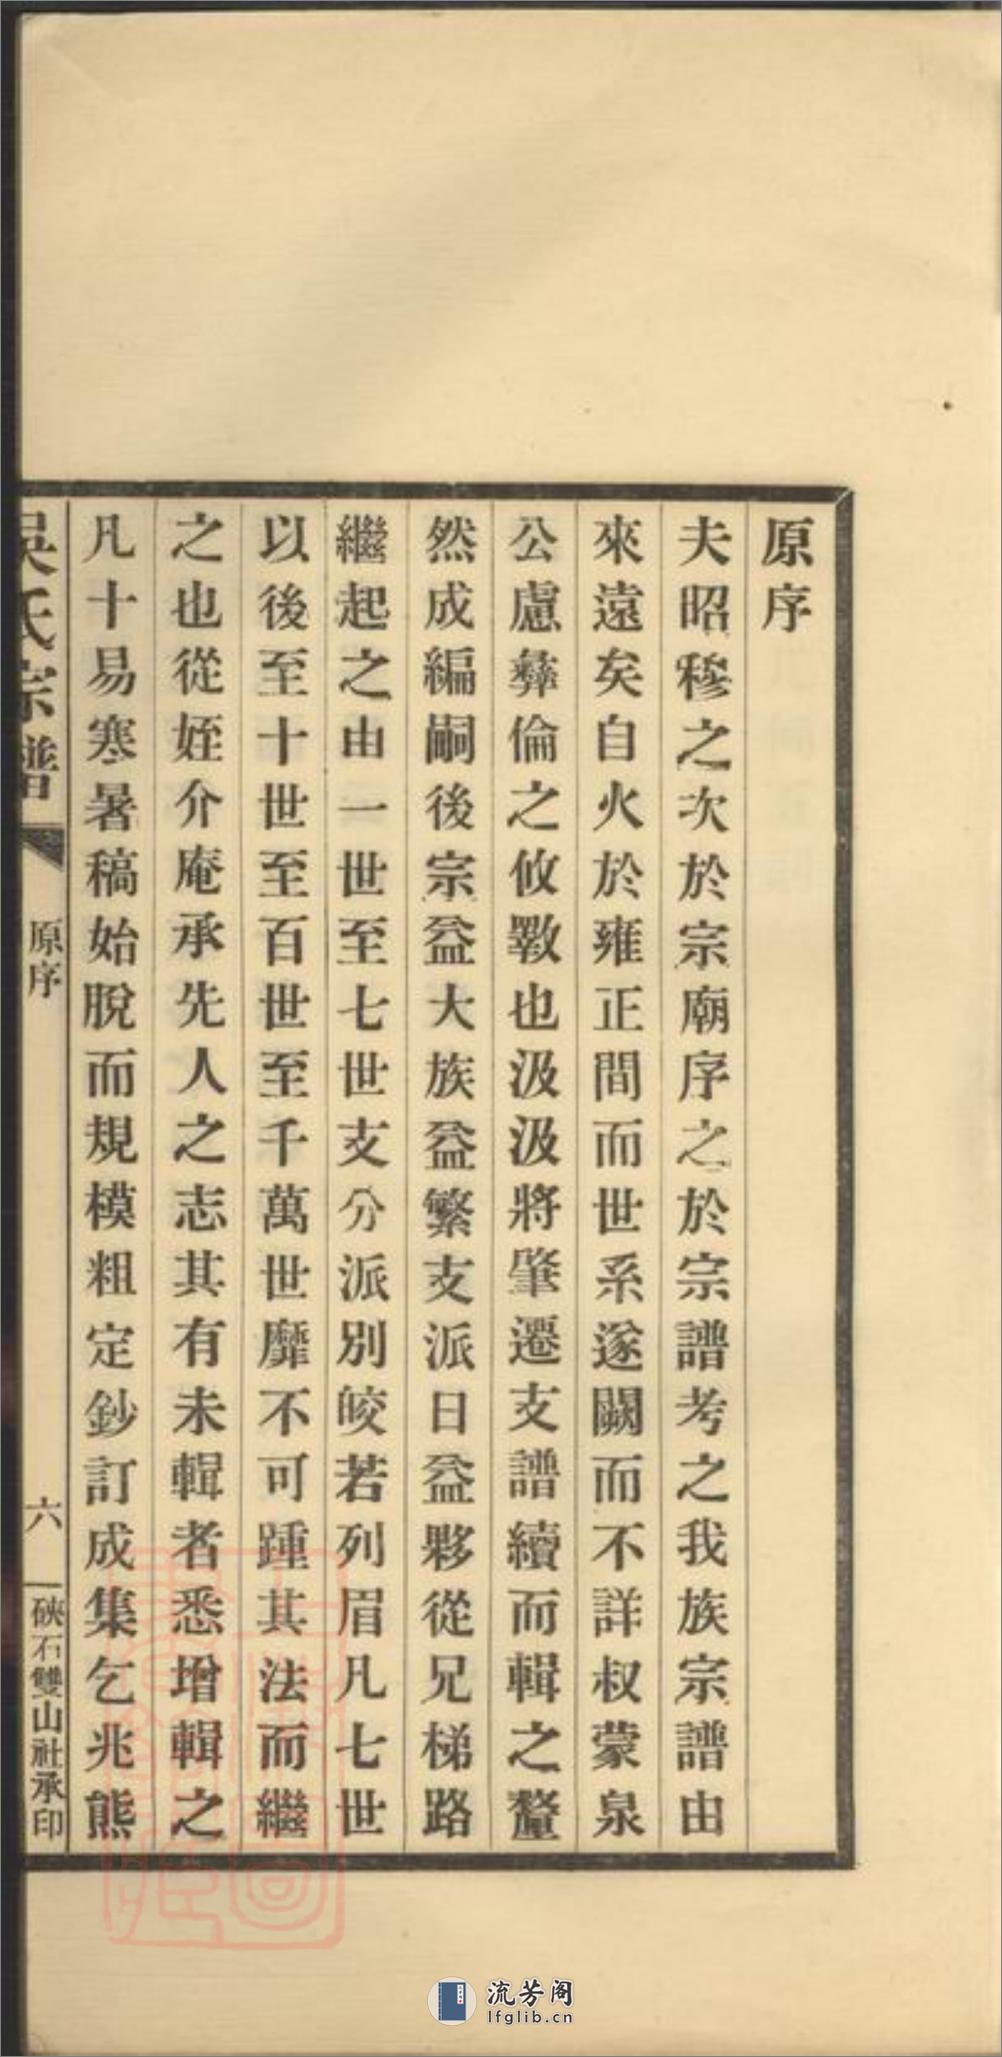 原序
夫昭穆之次於宗廟序之於宗譜考之我族宗譜由
來遠矣自火於雍正間而世系遂闕而不詳叔蒙泉
公慮彝倫之攸斁也汲汲將肇遷支譜續而輯之釐
然成編嗣後宗益大族益繁支派日益夥從兄梯路
繼起之由一世至七世支分派別皎若列眉凡七世
以後至十世至百世至千萬世靡不可踵其法而繼
之也從姪介庵承先人之志其有未輯者悉增輯之
凡十易寒暑稿始脫而規模粗定鈔訂成集乞兆熊
吳氏宗譜
原序
六
硤石雙山社承印
流芳阁
lfglib.cn